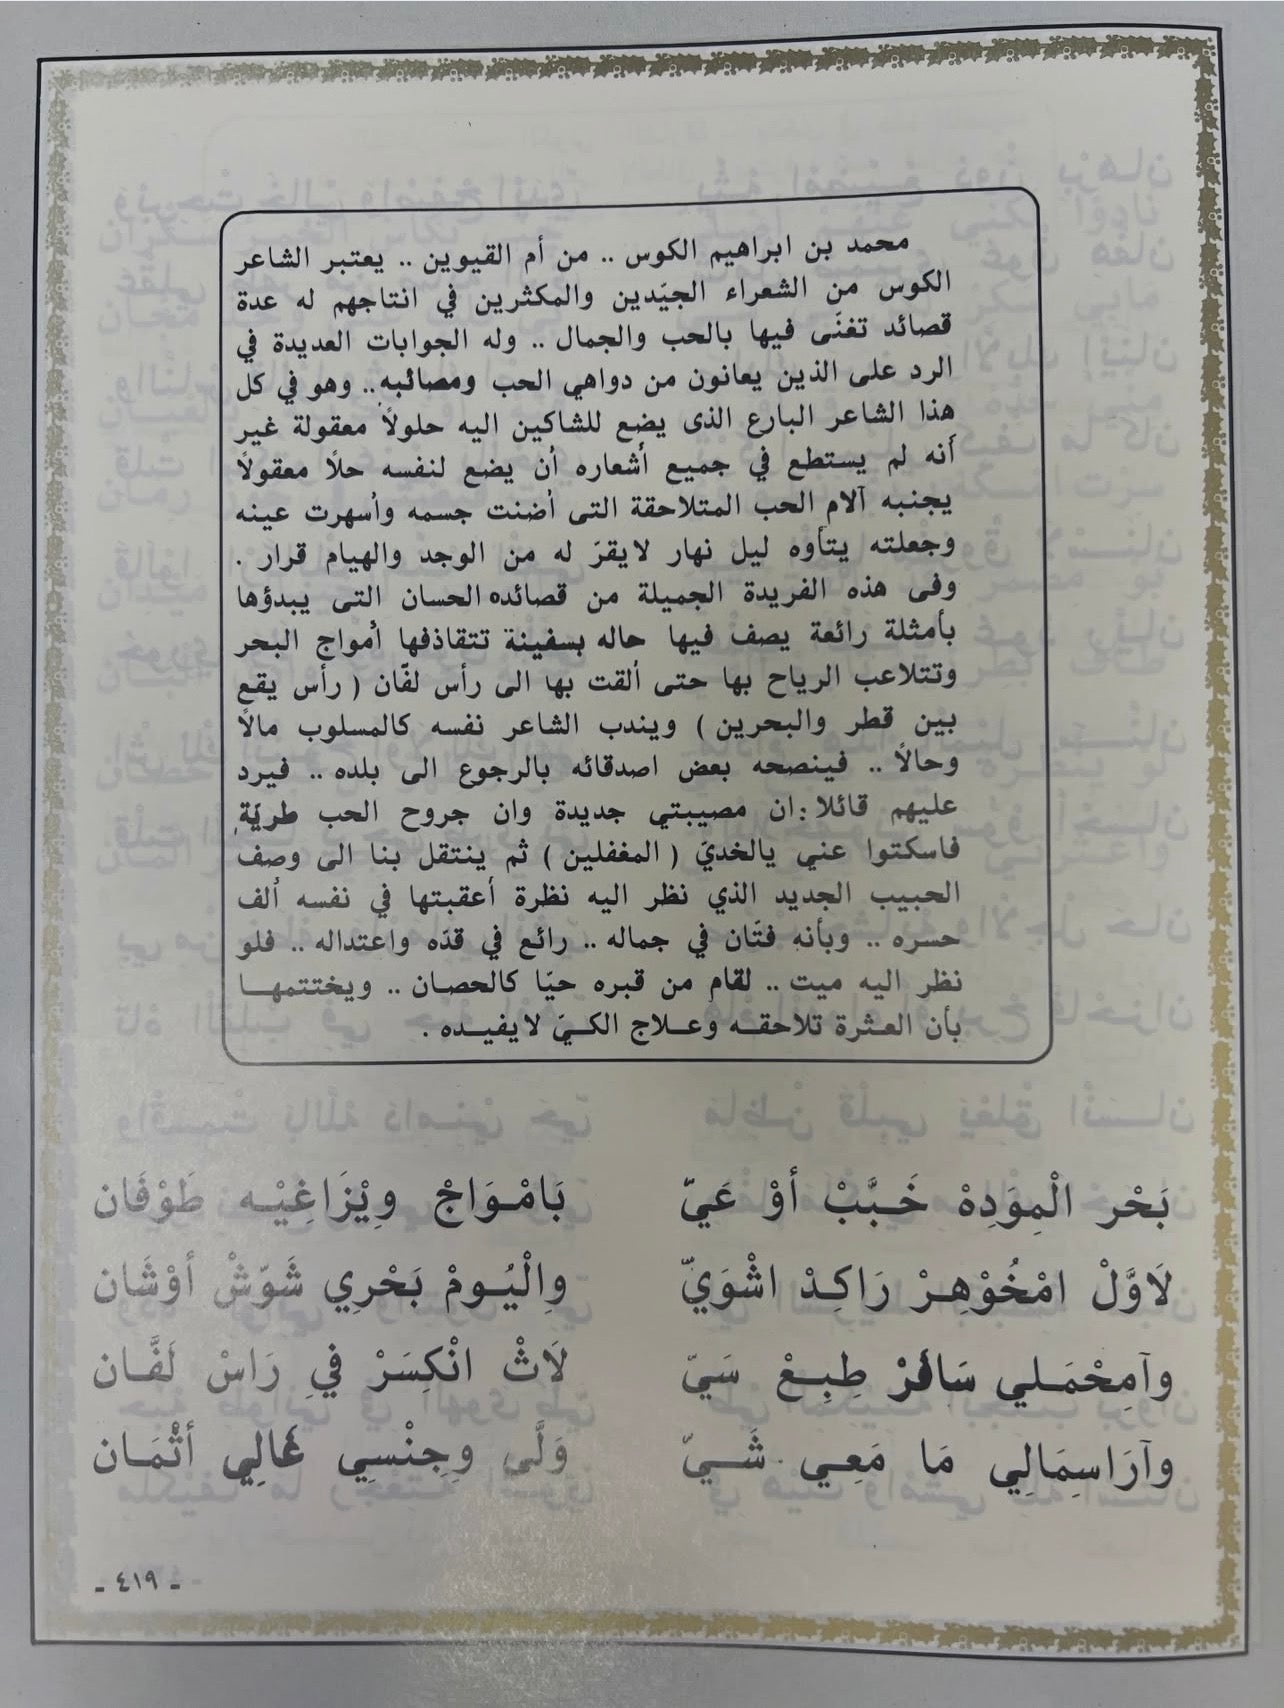 محمد بن ابراهيم الكوس .. من أم القيوين .. يعتبر الشاعر
الكوس من الشعراء الجيّدين والمكثرين في انتاجهم له عدة
قصائد تغنّى فيها بالحب والجمال .. وله الجوابات العديدة في
الرد على الذين يعانون من دواهي الحب ومصائبه .. وهو في كل
هذا الشاعر البارع الذى يضع للشاكين اليه حلولاً معقولة غير
أنه لم يستطع في جميع أشعاره أن يضع لنفسه حلًا معقولًا
يجنبه آلام الحب المتلاحقة التى أضنت جسمه وأسهرت عينه
وجعلته يتأوه ليل نهار لايقرّ له من الوجد والهيام قرار .
وفى هذه الفريدة الجميلة من قصائده الحسان التى يبدؤها
بأمثلة رائعة يصف فيها حاله بسفينة تتقاذفها أمواج البحر
وتتلاعب الرياح بها حتى ألقت بها الى رأس لفّان ( رأس يقع
بين قطر والبحرين ) ويندب الشاعر نفسه كالمسلوب مالًا
وحالًا .. فينصحه بعض اصدقائه بالرجوع الى بلده .. فيرد
عليهم قائلا : ان مصيبتي جديدة وان جروح الحب طريّة
فاسكتوا عني يالخديّ ( المغفلين ) ثم ينتقل بنا الى وصف
الحبيب الجديد الذي نظر اليه نظرة أعقبتها في نفسه ألف
حسره .. وبأنه فتّان في جماله .. رائع في قدّه واعتداله .. فلو
نظر اليه ميت .. لقام من قبره حيّا كالحصان .. ويختتمهـا
بأن العثرة تلاحقه وعلاج الكيّ لايفيده .
بَحْر الْمِوَدِهْ خَبَّبْ أوْ عَيّ بَامْوَاجْ وِيْزَاغِيْه طَوْفَان
لَاوَّلْ امْخُوْهِرْ رَاكِدْ اشْوَيّ وِالْيُومْ بَحْرِي شَوّشْ أوْشَان
وآمِحْمَلي سَافَرْ طِبِعْ سَيّ لَاثْ انْكِسَرْ فيِ رَاسْ لَفَّان
وآرَاسِمَالِي مَا مَعِي شَيّ وَلَّى وِجِنْسِي غَالِي أثْمَان
- ٤١٩ -